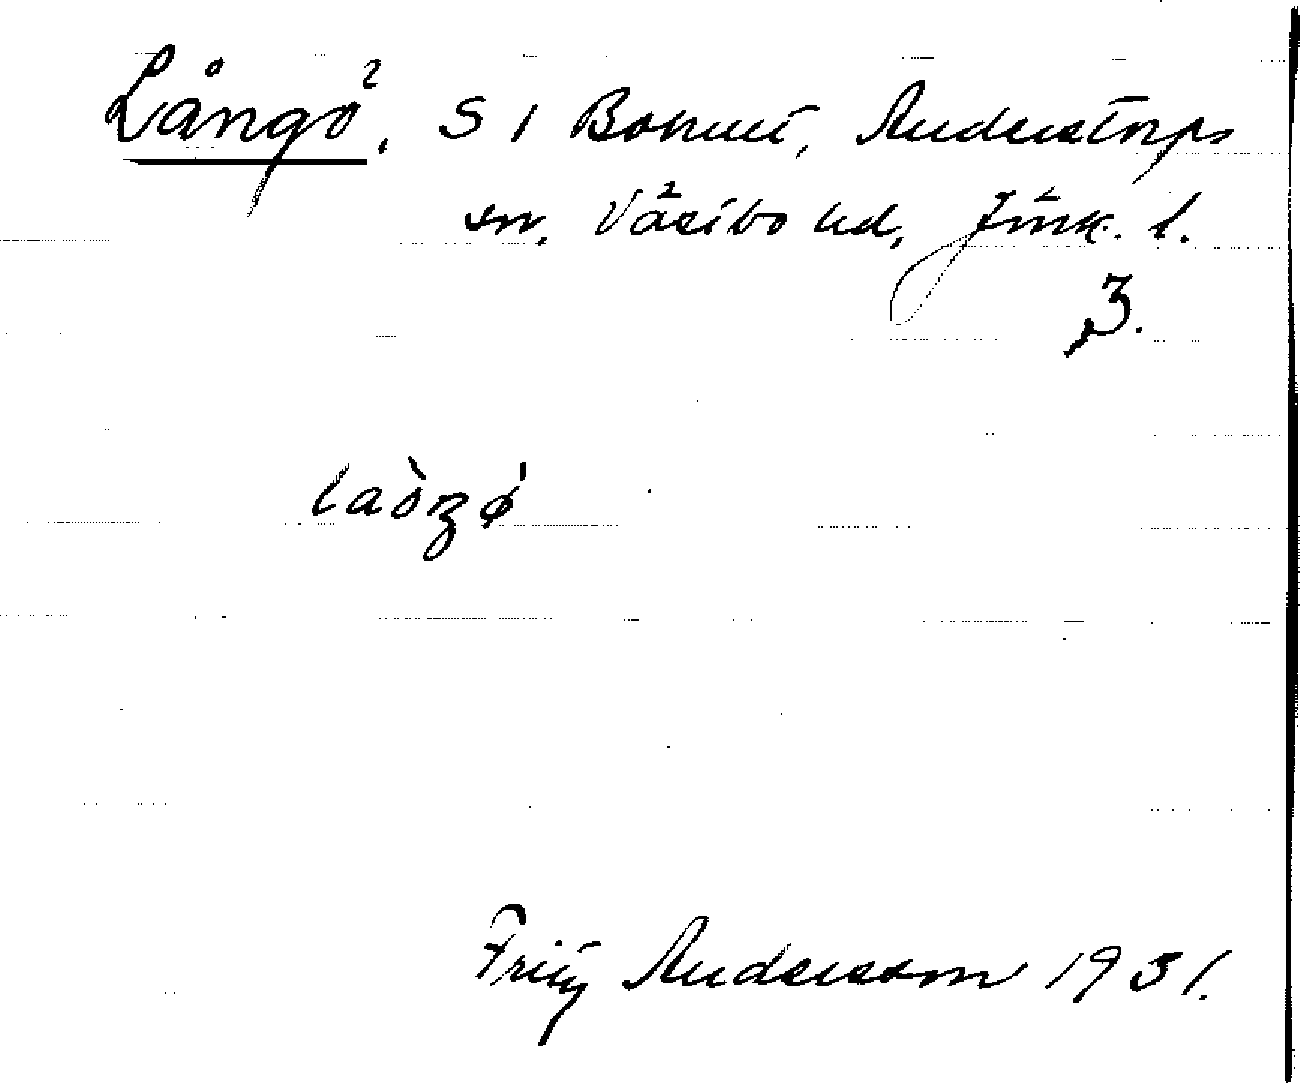 Långö, S 1 Bohult, Anderstorps
sn, Västbo hd, Jönk. l.
3.
laòzǿ
Fritz Andersson 1931.